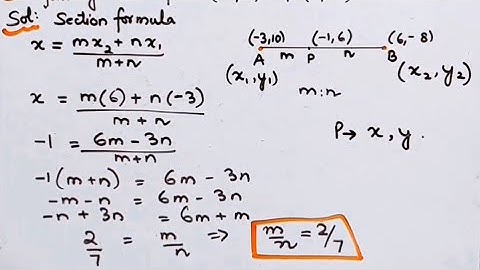 Sol: Section formula
x = mx₂ + nx₁ / m+n
x = m(6) + n(-3) / m + n
-1 = 6m - 3n / m+n
-1(m+n) = 6m - 3n
-m - n = 6m - 3n
-n + 3n = 6m + m
2/7 = m/n => m/n = 2/7
(-3,10) (-1,6) (6,-8)
A m P n B
(x₁, y₁) (x₂, y₂)
m:n
P→ x, y.